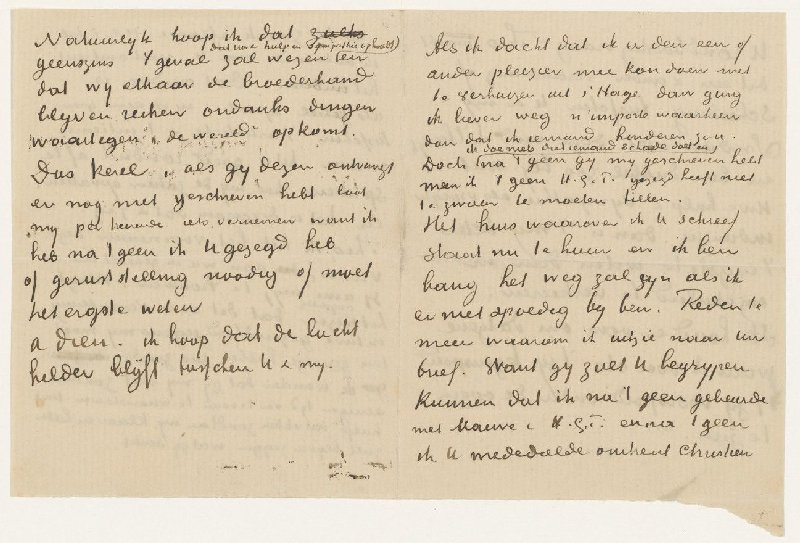 Natuurlyk hoop ik dat zulks
dat uwe hulp en sympathie ophoudt)
geenszins 't geval zal wezen (en
dat wy elkaar de broederhand
blyven reiken ondanks dingen
waartegen "de wereld" opkomt.
Dus kerel, als gy dezen ontvangt
en nog niet geschreven hebt laat
my per keerende iets vernemen want ik
heb na 't geen ik U gezegd heb
of geruststelling noodig of moet
het ergste weten
adieu. ik hoop dat de lucht
helder blyft tusschen U & my.
Als ik dacht dat ik er den een of
ander pleizier mee kon doen met
te verhuizen uit s'Hage dan ging
ik liever weg n'importe waarheen
dan dat ik iemand hinderen zou.
ik doe niets dat iemand schaade doet en
Doch (na 't geen gy my geschreven hebt
meen ik 't geen H.G.T. gezegd heeft niet
te zwaar te moeten tillen.
Het huis waarover ik U schreef
staat nu te huur en ik ben
bang het weg zal zyn als ik
er niet spoedig by ben. Reden te
meer waarom ik uitzie naar uw
brief. Want gy zult U begrypen
kunnen dat ik na 't geen gebeurde
met Mauve & H.G.T. en na 't geen
ik U mededeelde omtrent Christien